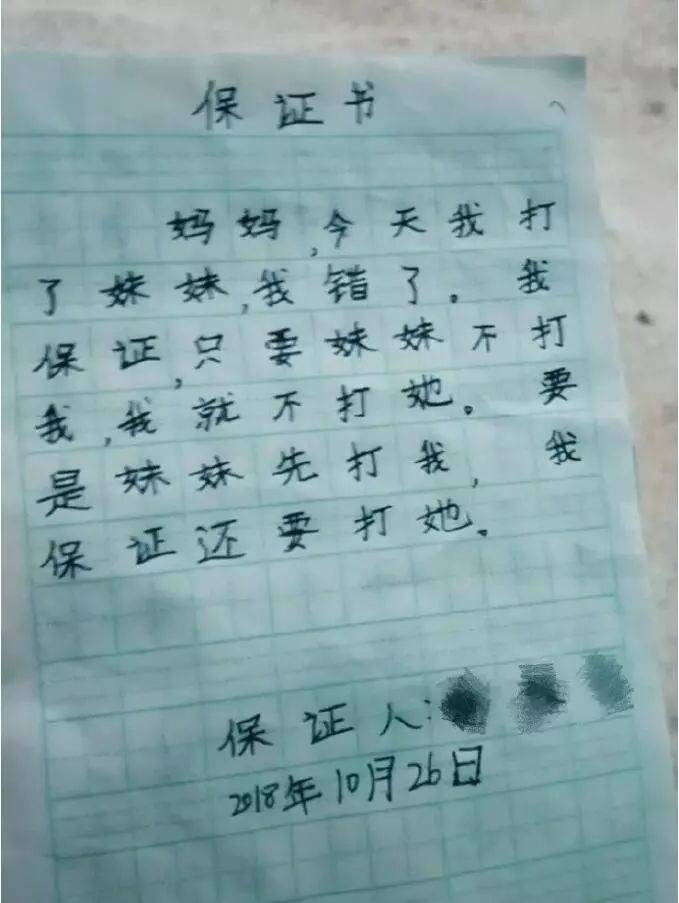 保证书
妈妈,今天我打
了妹妹,我错了。我
保证,只要妹妹不打
我,我就不打她。要
是妹妹先打我,我
保证还要打她。
保证人:
2018年10月26日